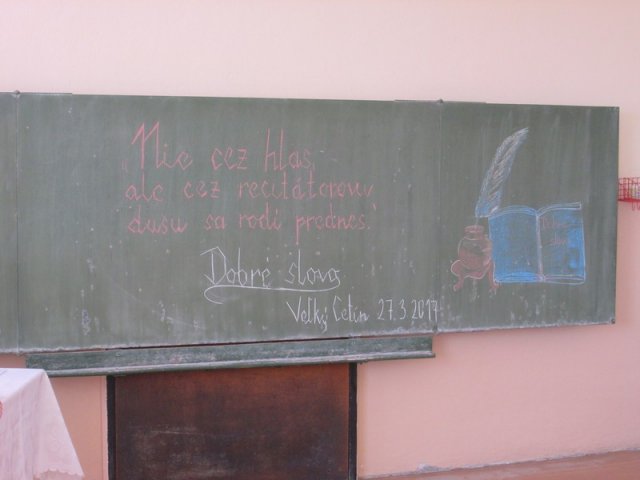 „Nie cez hlas,
ale cez recitátorovu
dušu sa rodí prednes.“
Dobré slovo
Veľký Cetín 27.3.2017